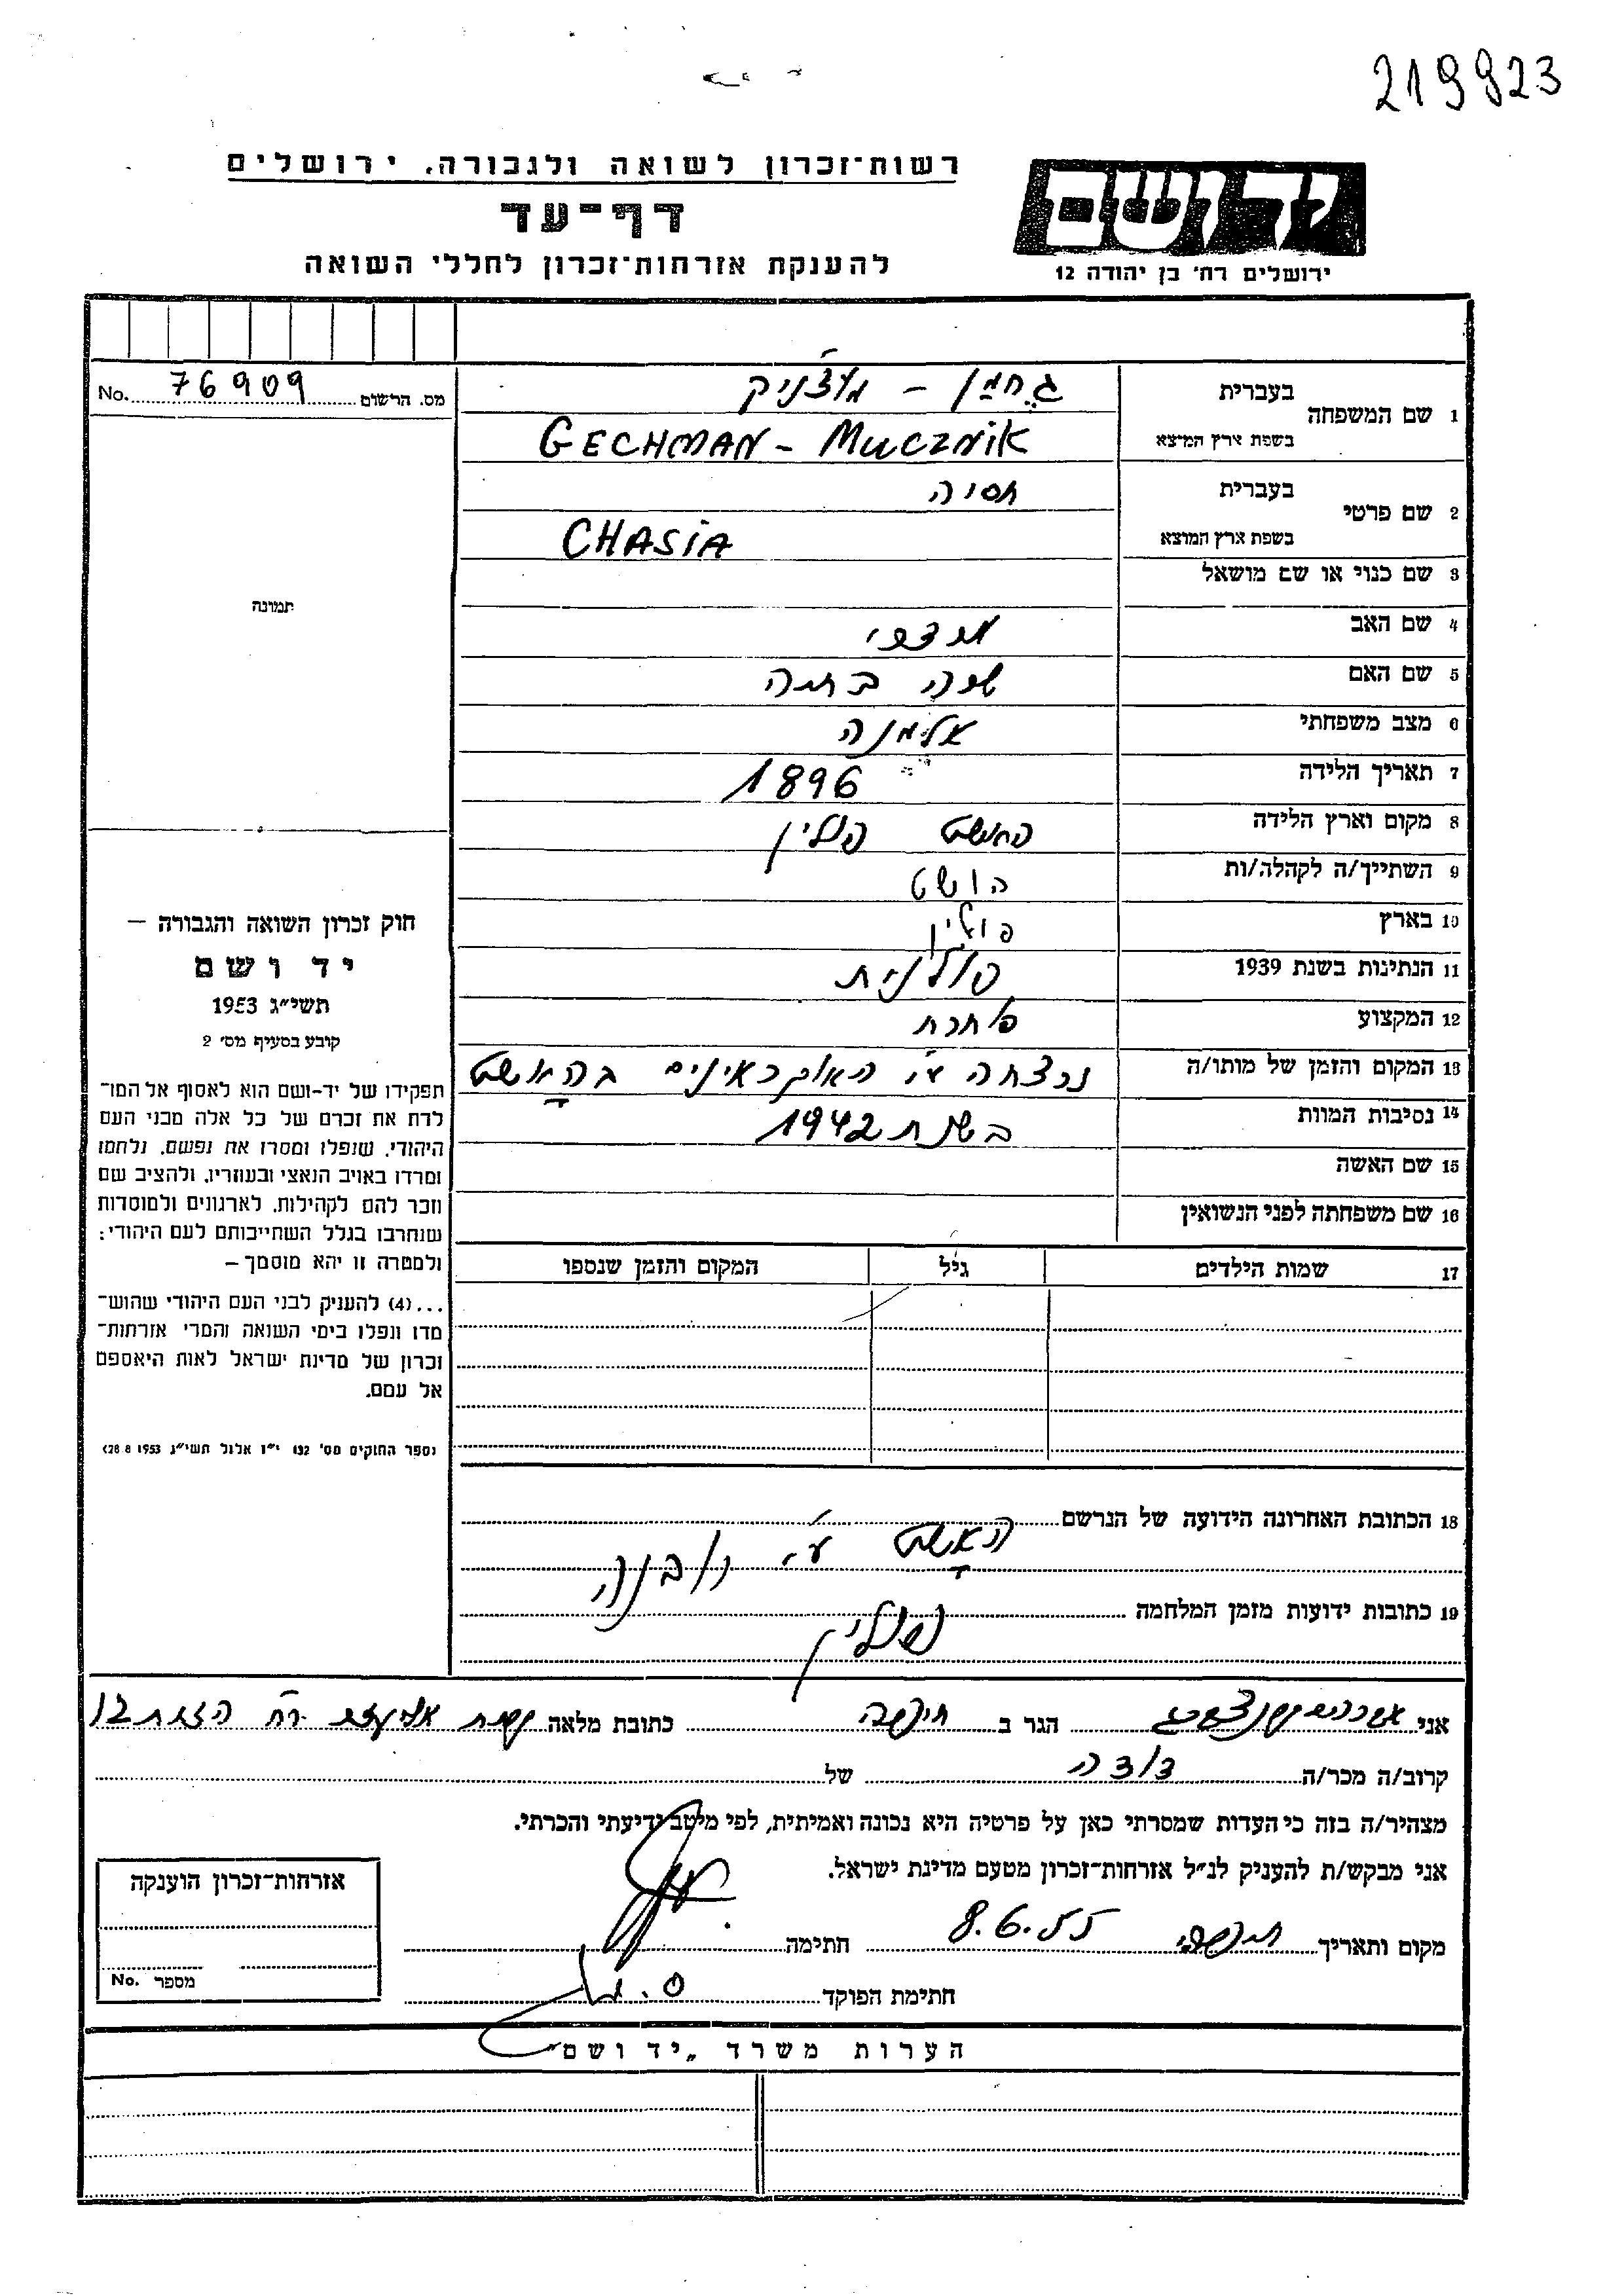 219923
רשות־זכרון לשואה ולגבורה, ירושלים
דף־עד
להענקת אזרחות־זכרון לחללי השואה
יד ושם
ירושלים רח' בן יהודה 12
מס. הרשום 76909 No.
1 שם המשפחה בעברית גחמן – מוצניק
בשפת ארץ המוצא GECHMAN – MUCZNIK
2 שם פרטי בעברית חסיה
בשפת ארץ המוצא CHASIA
3 שם כנוי או שם מושאל
4 שם האב מוטל
5 שם האם
6 מצב משפחתי אלמנה
7 תאריך הלידה 1896
8 מקום וארץ הלידה האשט פולין
9 השתייך/ה לקהלה/ות הושט
10 בארץ פולין
11 הנתינות בשנת 1939 פולנית
12 המקצוע
13 המקום והזמן של מותו/ה נרצחה ע"י האוקראינים בהאשט
14 נסיבות המוות בשנת 1942
15 שם האשה
16 שם משפחתה לפני הנשואין
17 שמות הילדים גיל המקום והזמן שנספו
תמונה
חוק זכרון השואה והגבורה –
יד ושם
תשי"ג 1953
קובע בסעיף מס' 2
תפקידו של יד־ושם הוא לאסוף אל המו־
לדת את זכרם של כל אלה מבני העם
היהודי, שנפלו ומסרו את נפשם, נלחמו
ומרדו באויב הנאצי ובעוזריו, ולהציב שם
וזכר להם לקהילות, לארגונים ולמוסדות
שנחרבו בגלל השתייכותם לעם היהודי:
ולמטרה זו יהא מוסמך –
...(4) להעניק לבני העם היהודי שהוש־
מדו ונפלו בימי השואה והמרי אזרחות־
זכרון של מדינת ישראל לאות היאספם
אל עמם.
(ספר החוקים מס' 132 י"ז אלול תשי"ג 28.8.1953)
18 הכתובת האחרונה הידועה של הנרשם
האשט ע"י
19 כתובות ידועות מזמן המלחמה
פולין
אני הגר ב חיפה כתובת מלאה רח' 12
קרוב/ה מכר/ה דודה של
מצהיר/ה בזה כי העדות שמסרתי כאן על פרטיה היא נכונה ואמיתית, לפי מיטב ידיעתי והכרתי.
אני מבקש/ת להעניק לנ"ל אזרחות־זכרון מטעם מדינת ישראל.
מקום ותאריך חיפה 8.6.55 חתימה
חתימת הפוקד
אזרחות־זכרון הוענקה
מספר No.
הערות משרד „יד ושם"